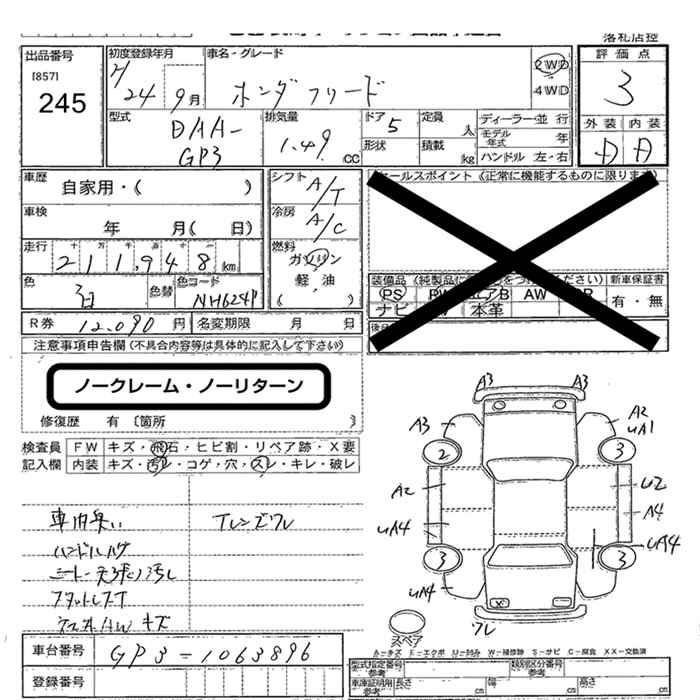 落札店控
出品番号
[857]
245
初度登録年月
H 24 9月
車名・グレード
ホンダ フリード
2WD
4WD
評価点
3
外装 内装
D D
型式
DAA-
GP3
排気量
1.49 CC
ドア 5
形状
定員 人
積載 kg
ディーラー・並行
モデル年式 年
ハンドル 左・右
車歴
自家用・( )
車検
年 月( 日)
走行
十 万 千 百 十
211,948 km
色
白
色替
色コード
NH624P
シフト
A/T
冷房
A/C
燃料
ガソリン
軽油
( )
セールスポイント (正常に機能するものに限ります)
新車保証書
有・無
PS
AW
ナビ
本革
R券 12,090 円
名変期限 月 日
注意事項申告欄(不具合内容等は具体的に記入して下さい)
ノークレーム・ノーリターン
修復歴 有 〔箇所 〕
検査員
記入欄
FW キズ・飛石・ヒビ割・リペア跡・X要
内装 キズ・汚レ・コゲ・穴・スレ・キレ・破レ
車内臭い
Tレンズワレ
ハンドルハゲ
シート天張り汚レ
スタットレスT
キズ
A3 A3
A3
A2
UA1
2
3
A2
U2
A4
UA4
UA4
3
3
UA4
X
ワレ
スペア
A-キズ E-エクボ U-凹ミ W-補修跡 S-サビ C-腐食 XX-交換済
車台番号
GP3-1063896
登録番号
型式指定番号
参考
類別区分番号
参考
車庫証明用
参考
長さ cm
幅 cm
高さ cm